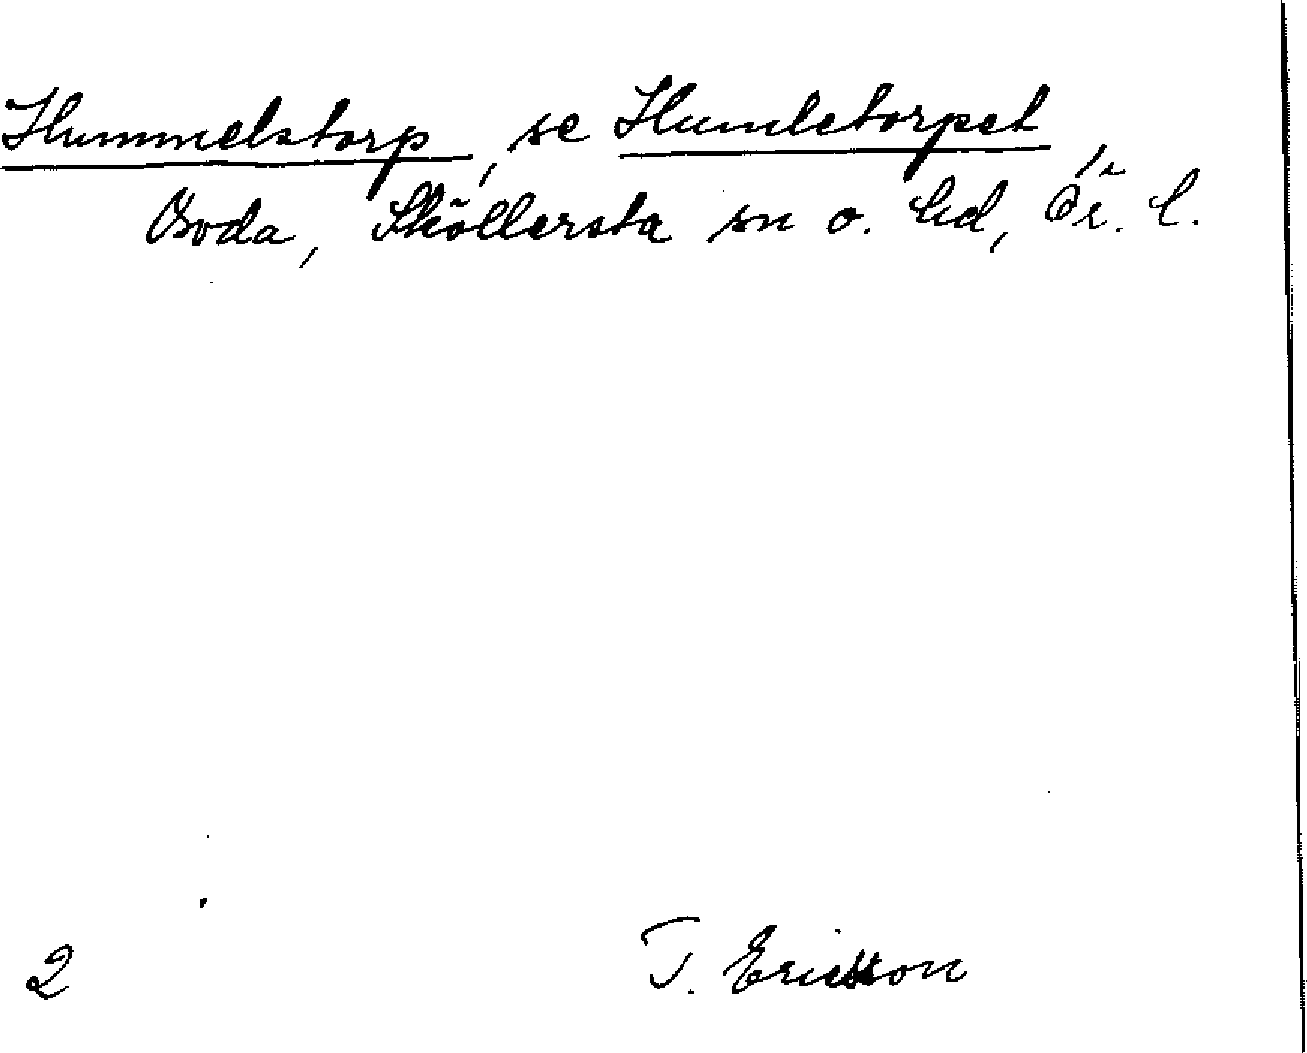 Hummelstorp, se Humletorpet,
Boda, Sköllersta sn o. hd, Ör. l.
2 T. Ericsson